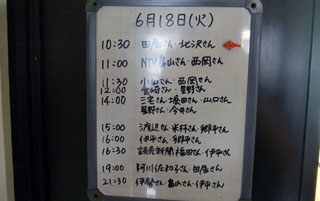 6月18日(火)
10:30 田居さん・北沢さん
11:00 NTV 畠山さん・西岡さん
11:30 小田さん・西岡さん
12:00 宮崎さん・星野さん
14:00 三宅さん・横田さん・山口さん
星野さん・今井さん
15:00 渡辺さん・米林さん・郷平さん
16:00 伊平さん・郷平さん
16:30 読売新聞 福田さん・伊平さん
19:00 阿川佐和子さん・田居さん
21:30 伊勢さん・畠山さん・伊平さん